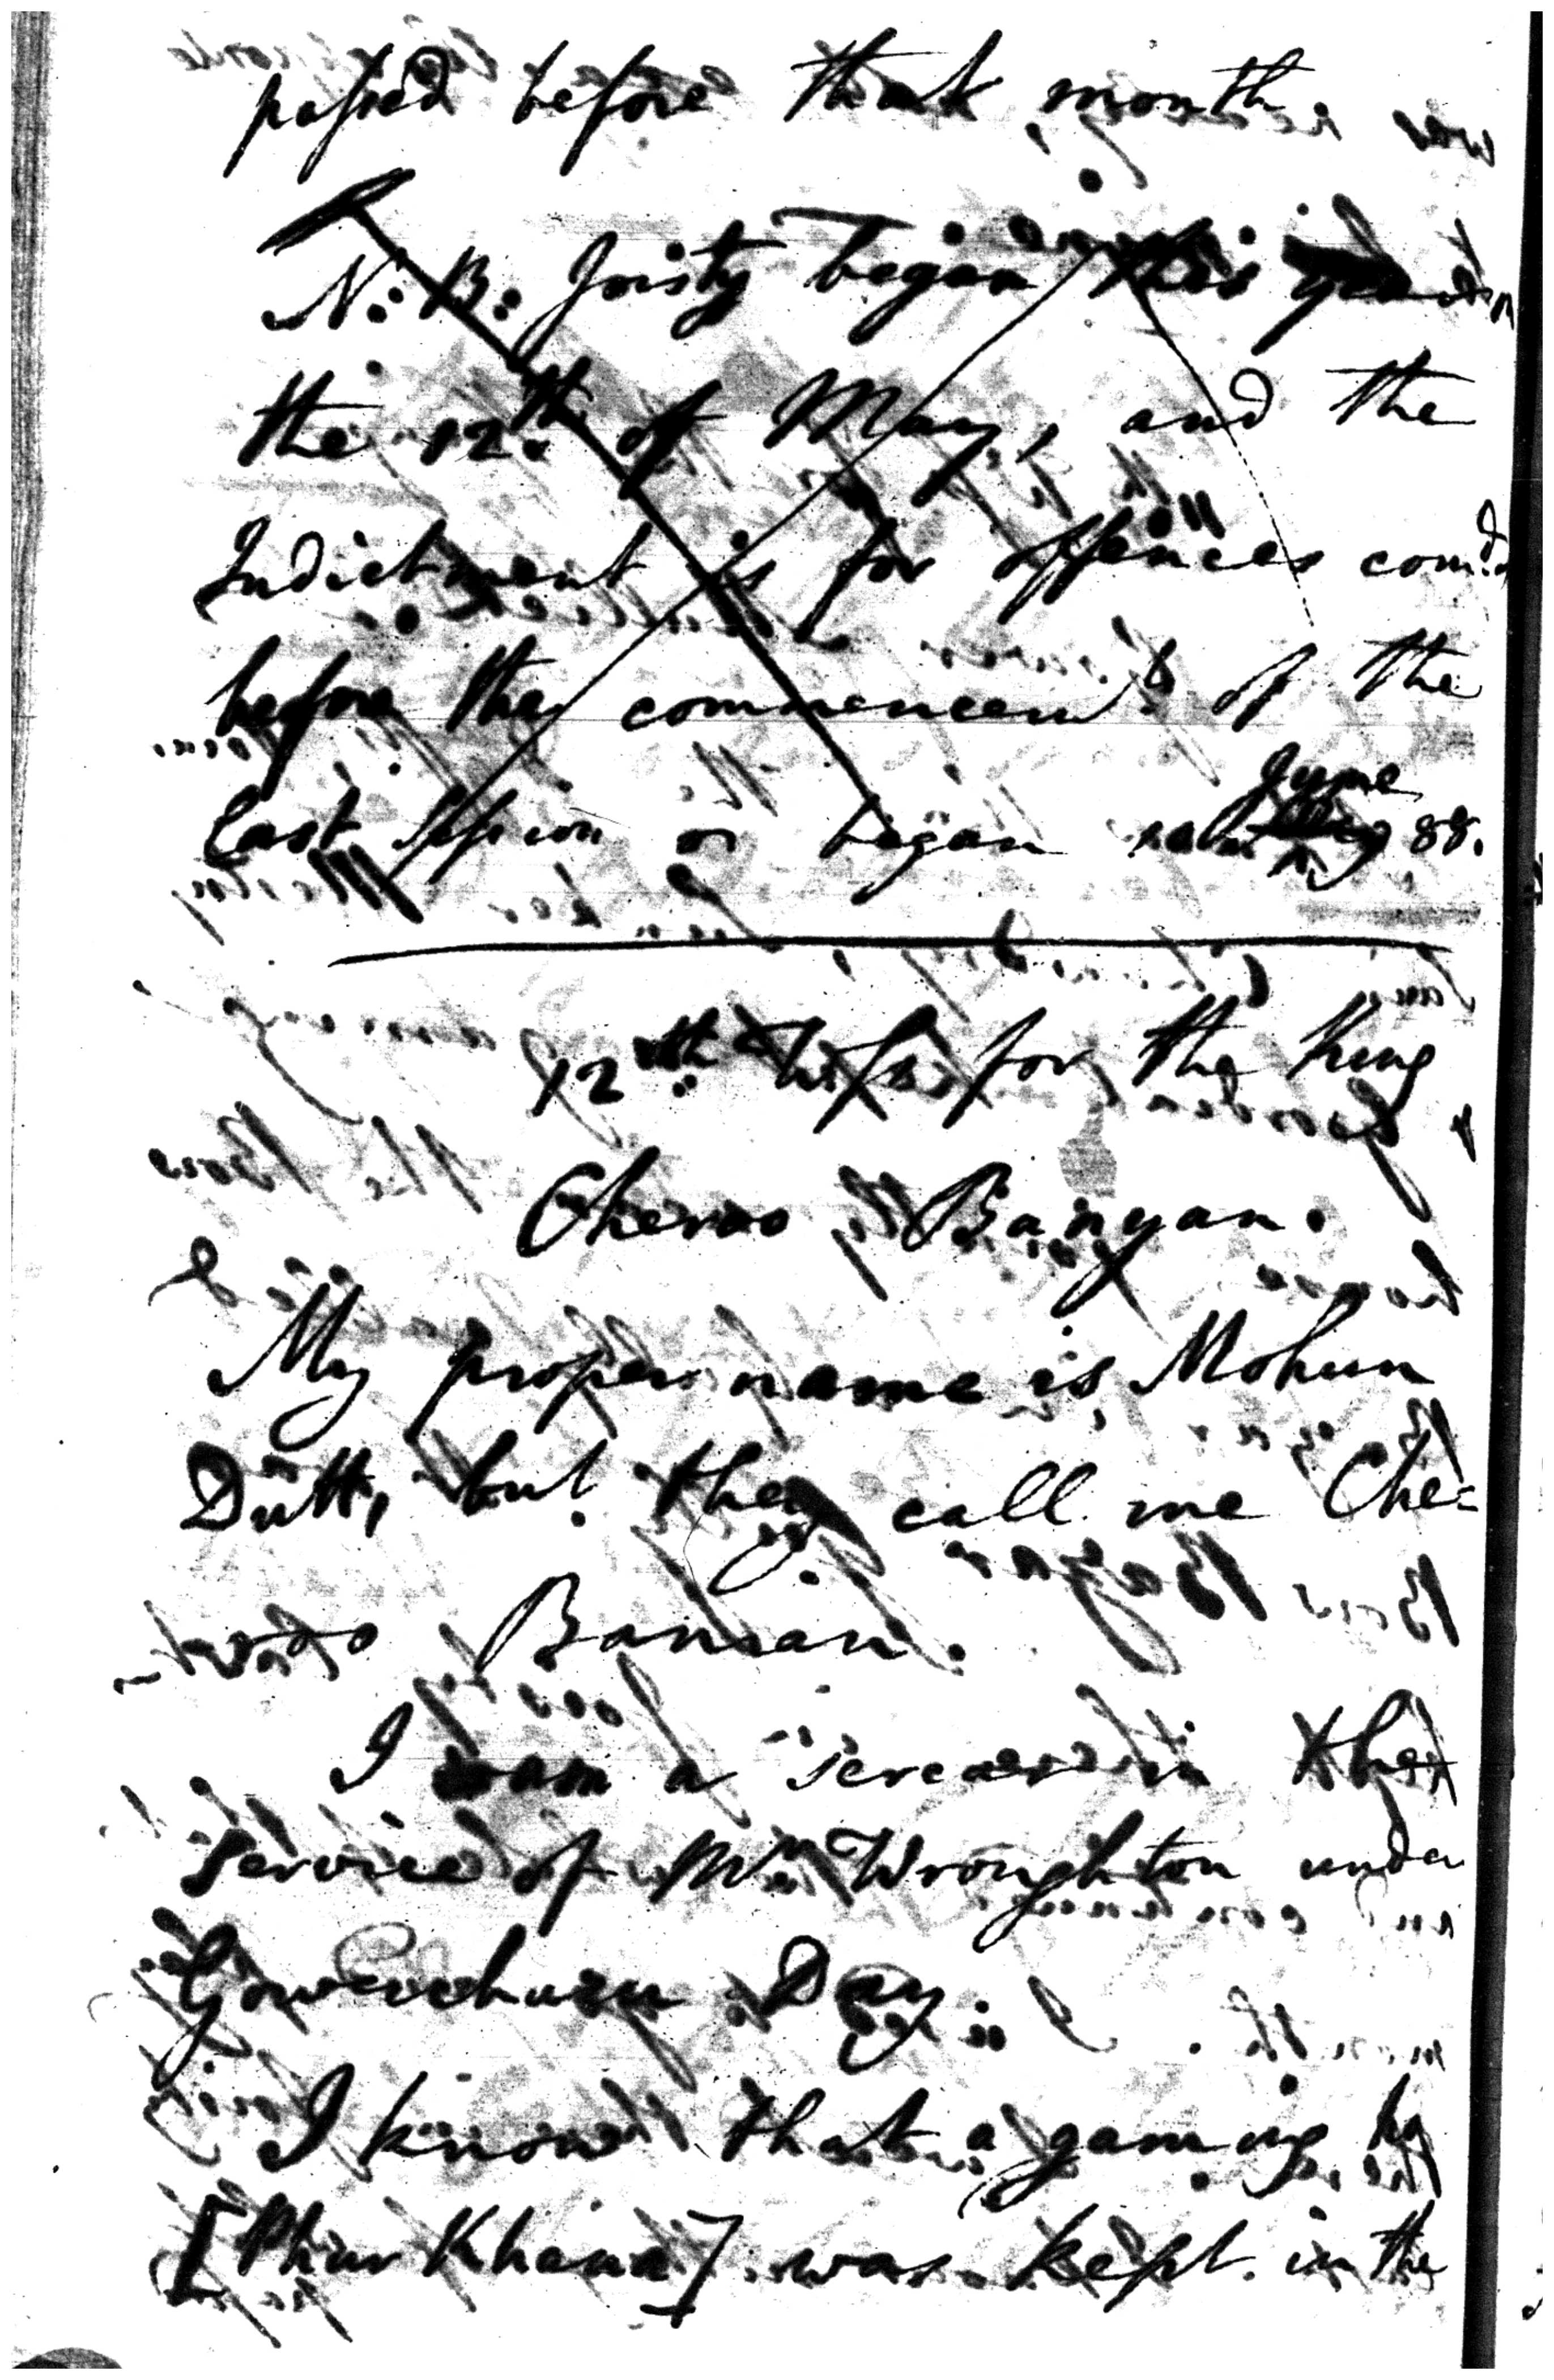 passed before that month.
N. B. Joisty began this year
the 12th. of May, and the
Indictment is for offences com.d
before the commencem.t of the
last Session or began June 88.
12th. Wits. for the King
Cheroo Banyan.
My proper name is Mohun
Dutt, but they call me Che=
=roo Banian.
I am a sercar in the
service of Mr. Wroughton under
Gowerchurn Day.
I know that a gaming h
[Phur Khana] was kept in the